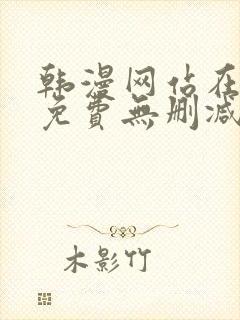 韩漫网站在
免費無删减
木影竹